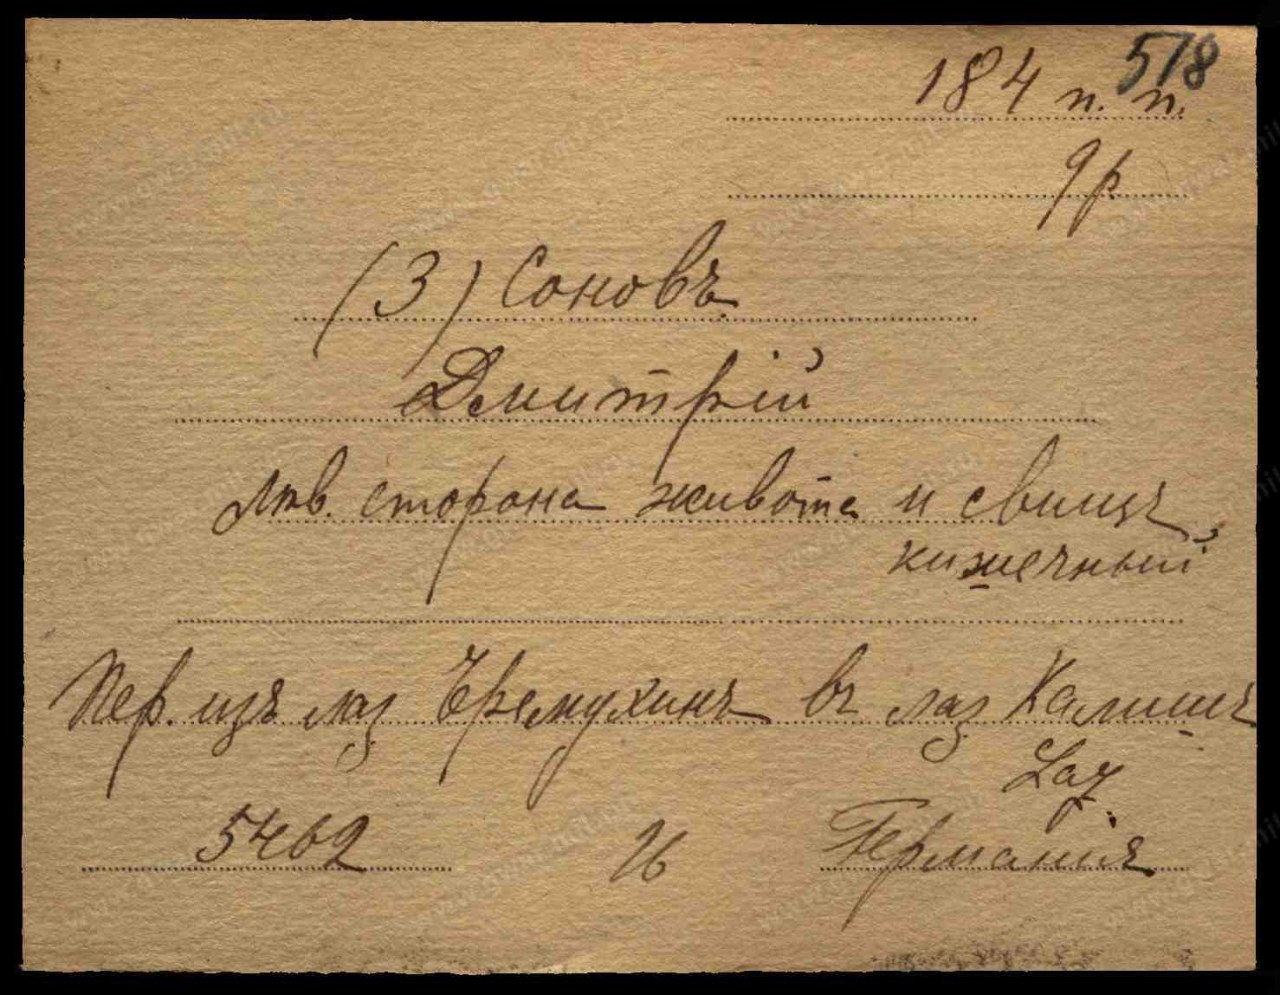 578
184 п. п.
9 р.
(З) Соновъ
Дмитрій
лѣв. сторона живота и свищъ
кишечный
Пер. изъ лаз Черемухинъ въ лаз Калишъ
Laz.
5462 26 Германія